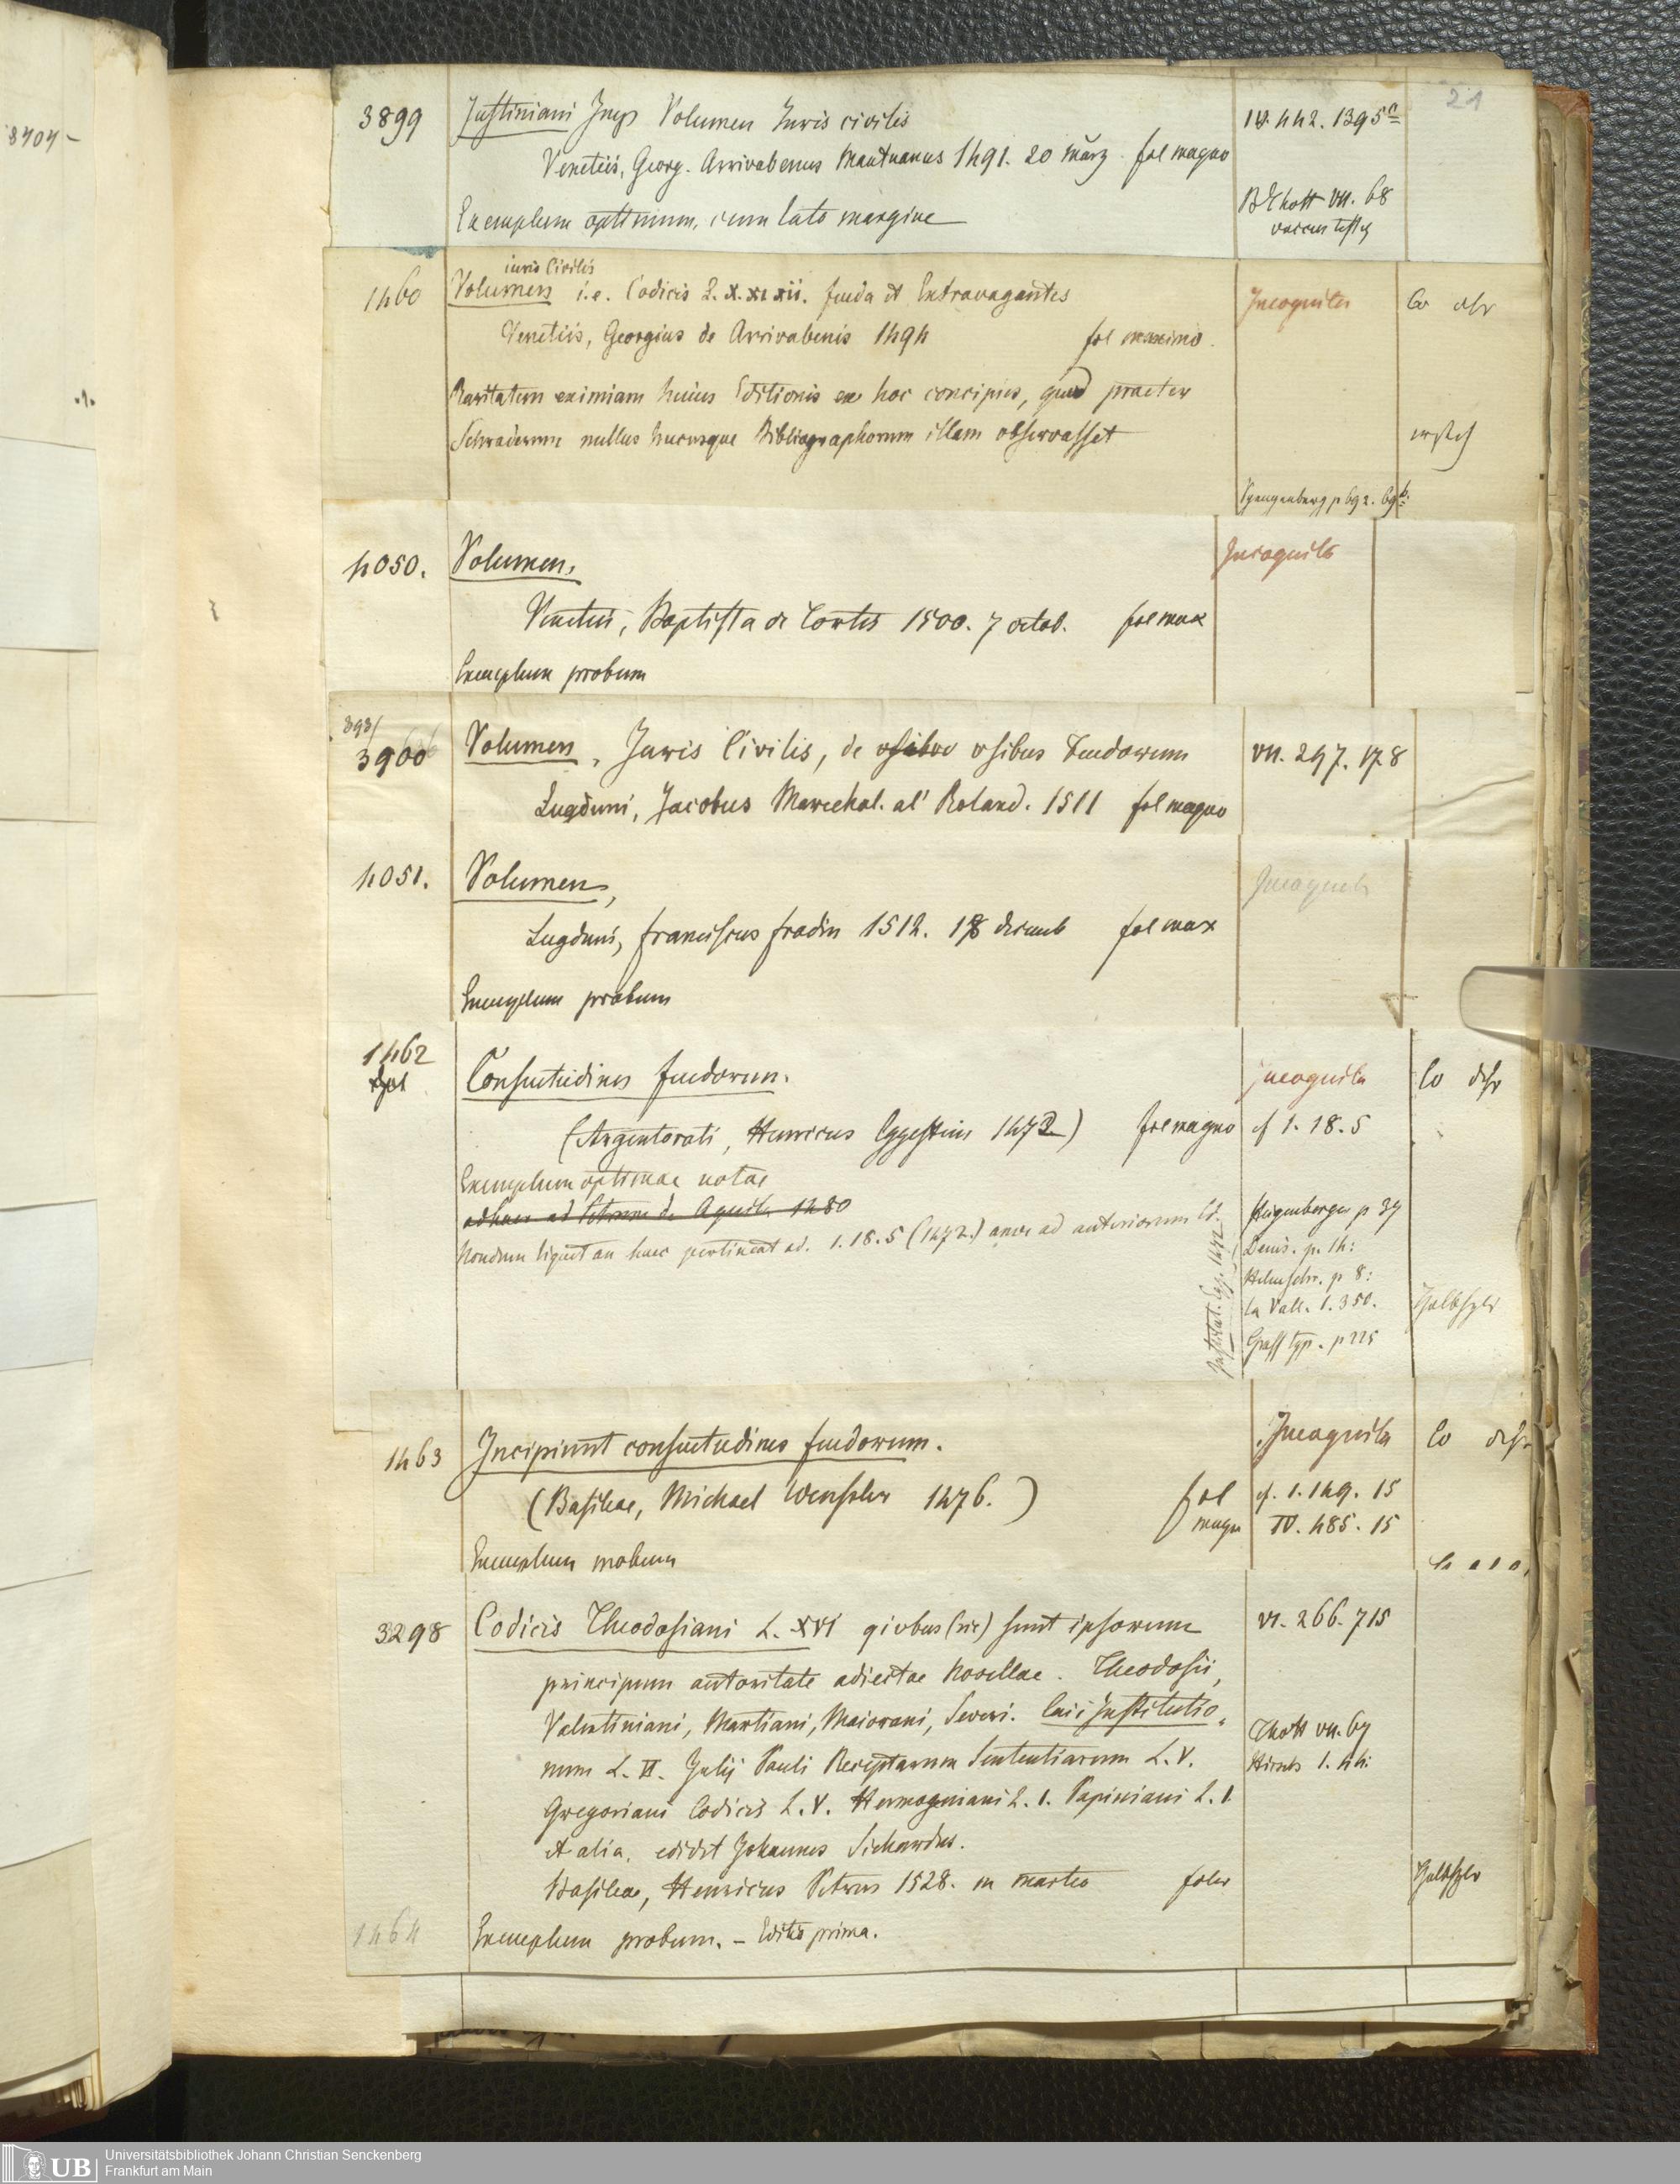 3704 –
21
3899
Justiniani Imp Volumen Iuris civilis
Venetiis, Georg. Arrivabenus Mantuanus 1491. 20 März. fol magno
Exemplum optimum, cum lato margine
442. 1395
VII. 68
1460
iuris Civilis
Volumen i.e. Codicis L. X. XI XII. feuda et Extravagantes
Venetiis, Georgius de Arrivabenis 1494 fol maximo.
Raritatem eximiam huius Editionis ex hoc concipies, quod praeter
Schraderum nullus hucusque Bibliographorum illam observasset
Incognita
Co
Spangenberg p 692. 69
4050.
Volumen,
Venetiis, Baptista de Tortis 1500. 7 octob. fol max
Exemplum probum
Incognita
393/
3900
Volumen, Juris Civilis, de usibus Feudorum
Lugduni, Jacobus Marechal. al' Roland. 1511 fol magno
VII. 297. 178
4051.
Volumen,
Lugduni, franciscus fradin 1512. decemb fol max
Exemplum probum
Incognita
1462
Consuetudines feudorum.
(Argentorati, Henricus Eggestein 1472) fol magno
Exemplum optimae notae
Nondum liquet an huec pertineat ad. 1. 18. 5 (1472.) an ad anteriorem Ed.
Institut. Egg. 1472
Incognita
cf 1. 18. 5
Co
p 34
Denis. p. 14:
Helmschr. p 8:
La Vall. 1. 350.
typ. p 225
1463
Incipiunt consuetudines feudorum.
(Basileae, Michael Wenssler 1476.) fol magn
Exemplum probum
Incognita
cf. 1. 149. 15
IV. 485. 15
Co
3298
Codicis Theodosiani L. XVI qiobus (sic) sunt ipsorum
principum autoritate adiectae Novellae. Theodosii,
Valentiniani, Martiani, Maiorani, Severi. Caii Institutio-
num L. II. Julij Pauli Receptarum Sententiarum L. V.
Gregoriani Codicis L. V. Hermogeniani L. 1. Papiniani L. 1
et alia. edidit Johannes Sichardus.
Basileae, Henricus Petrus 1528. m martio folio
Exemplum probum. – Editio prima.
VI. 266. 715
Thott VII. 67
Hirsch 1. 44:
1464
UB
Universitätsbibliothek Johann Christian Senckenberg
Frankfurt am Main